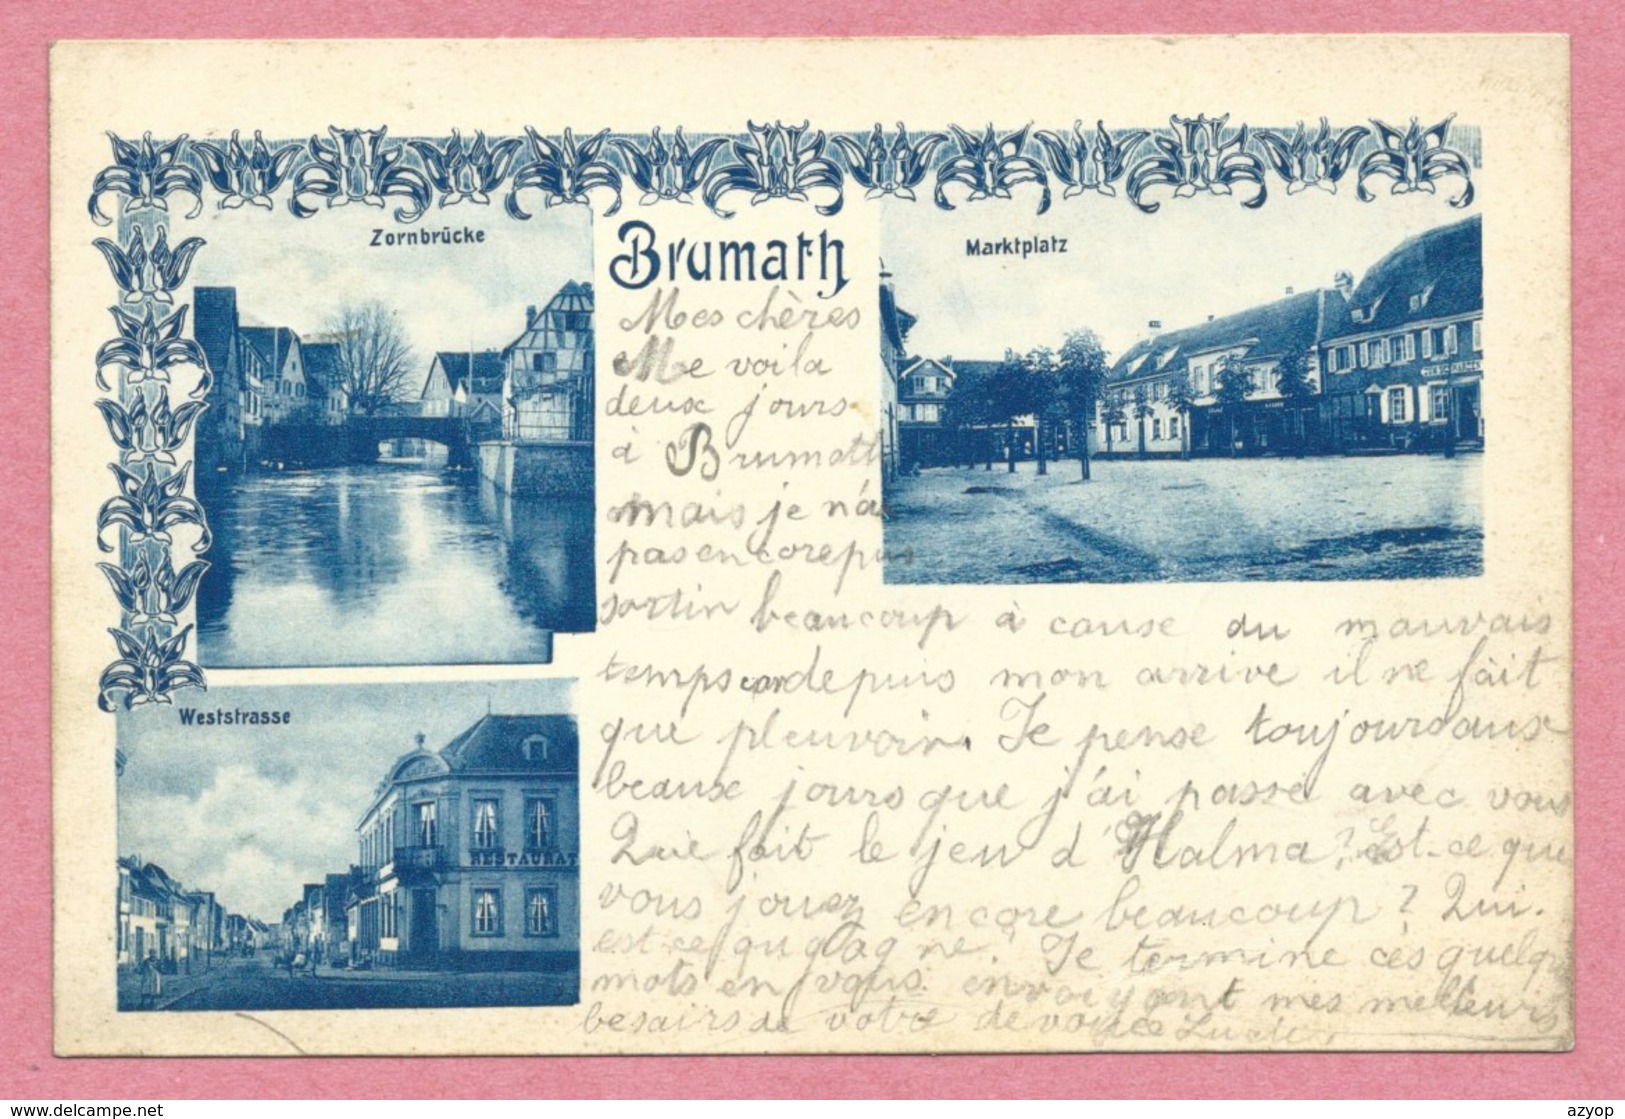 Zornbrücke
Brumath
Marktplatz
Weststrasse
RESTAURAT
Mes chères
Me voila
deux jours
à Brumath
mais je n'ai
pas encore pus
sortir beaucoup à cause du mauvais
temps car depuis mon arrive il ne fait
que pleuvoir. Je pense toujours aux
beaux jours que j'ai passé avec vous
Que fait le jeu d'Halma? Est-ce que
vous jouez encore beaucoup? Qui.
est-ce qui gagne? Je termine ces quelqu
mots en vous envoiyant mes meilleurs
besairs de votre
www.delcampe.net
azyop